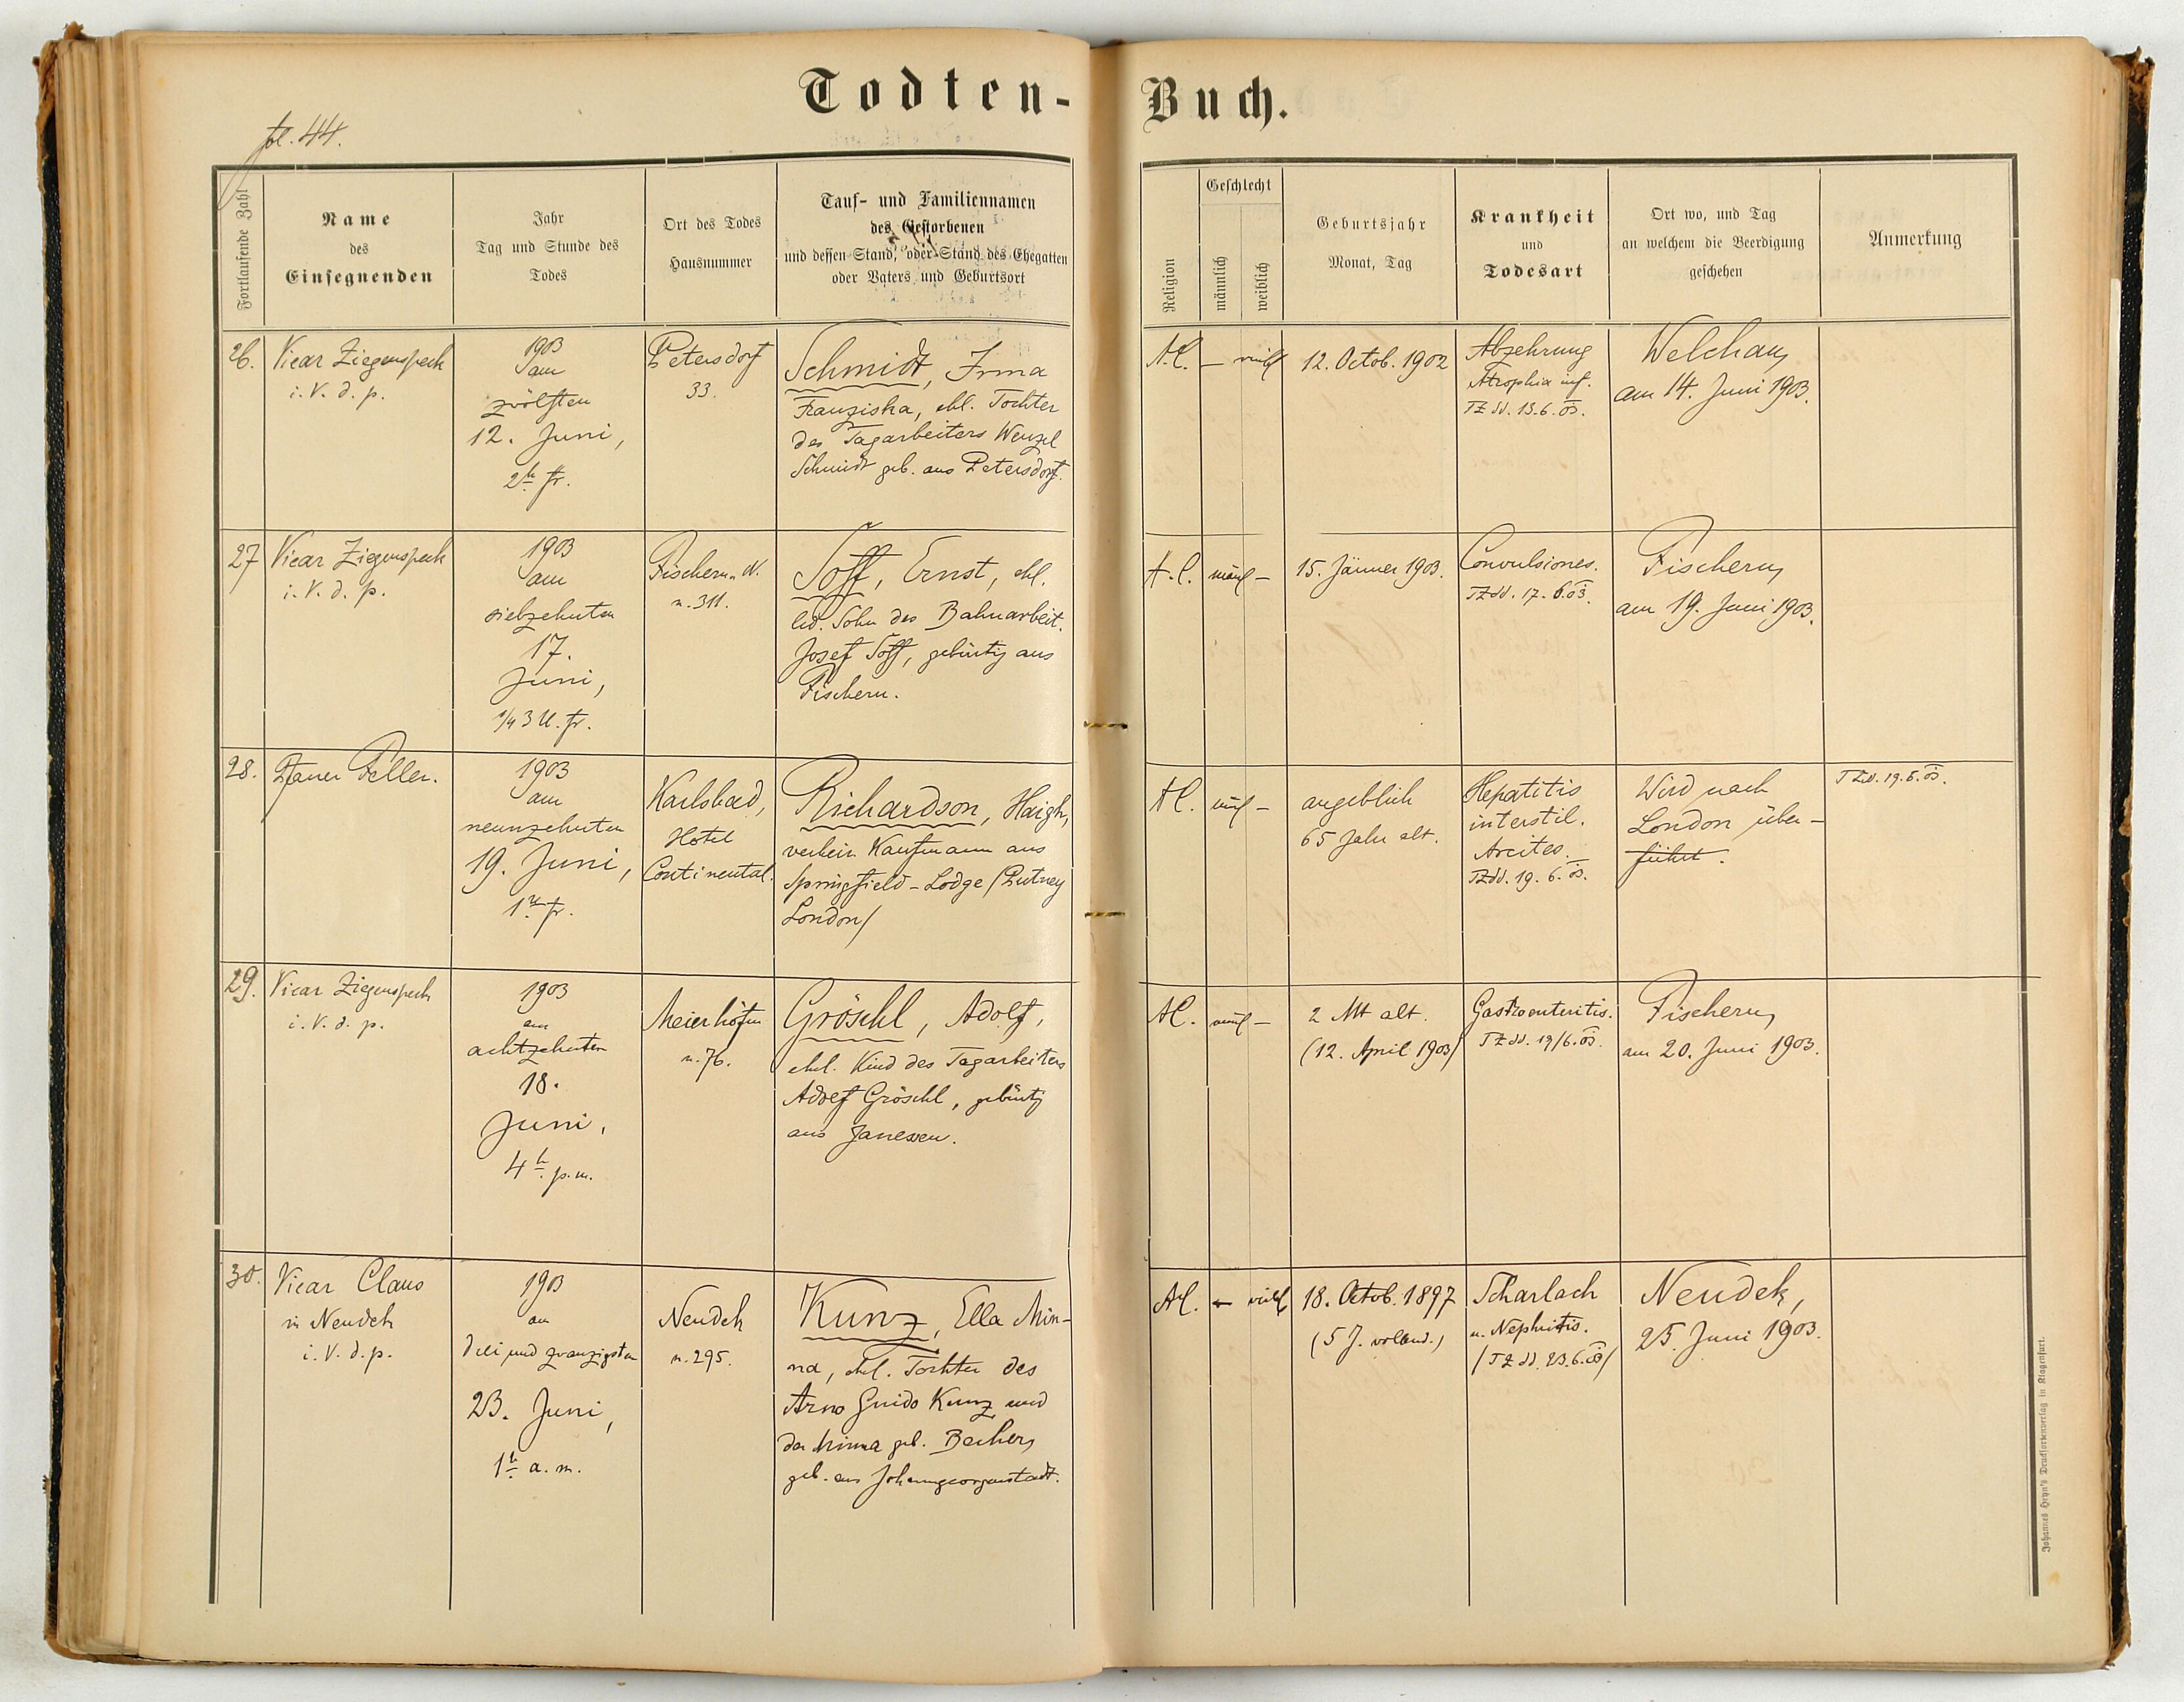 Todten-
Buch.
fol. 44.
Fortlaufende Zahl
Name
des
Einsegnenden
Jahr
Tag und Stunde des
Todes
Ort des Todes
Hausnummer
Tauf- und Familiennamen
des Gestorbenen
und dessen Stand, oder Stand des Ehegatten
oder Vaters und Geburtsort
Religion
Geschlecht
männlich
weiblich
Geburtsjahr
Monat, Tag
Krankheit
und
Todesart
Ort wo, und Tag
an welchem die Beerdigung
geschehen
Anmerkung
26.
Vicar Ziegenspeck
i. V. d. p.
1903
am
zwölften
12. Juni,
2h fr.
Petersdorf
33.
Schmidt, Irma
Franziska, ehl. Tochter
des Tagarbeiters Wenzel
Schmidt geb. aus Petersdorf.
A.C.
– weibl
12. Octob. 1902
Abzehrung
Atrophia inf.
TZ dd. 13.6.03.
Welchau,
am 14. Juni 1903.
27
Vicar Ziegenspeck
i. V. d. p.
1903
am
siebzehnten
17.
Juni,
1/4 3 U. fr.
Fischern N.
n. 311.
Toff, Ernst, ehl.
led. Sohn des Bahnarbeit.
Josef Toff, gebürtig aus
Fischern.
A.C.
männl –
15. Jänner 1903.
Convulsiones.
TZ dd. 17.6.03.
Fischern,
am 19. Juni 1903.
28.
Pfarrer Feller.
1903
am
neunzehnten
19. Juni,
1 U fr.
Karlsbad,
Hotel
Continental.
Richardson, Haigh,
verheir. Kaufmann aus
Springfield-Lodge (Putney
London)
AC.
ml –
angeblich
65 Jahr alt.
Hepatitis
interstit.
Arcites.
TZ dd. 19.6.03.
Wird nach
London über-
führt.
TZ dd. 19.6.03.
29.
Vicar Ziegenspeck
i. V. d. p.
1903
am
achtzehnten
18.
Juni,
4h p.m.
Meierhöfen
n. 76.
Gröschl, Adolf,
ehel. Kind des Tagarbeiters
Adolf Gröschl, gebürtig
aus Janessen.
AC.
ml –
2 Mt alt.
(12. April 1903)
Gastroenteritis.
TZ dd. 19/6.03.
Fischern,
am 20. Juni 1903.
30.
Vicar Claus
in Neudek
i. V. d. p.
1903
am
drei und zwanzigsten
23. Juni,
1h a. m.
Neudek
n. 295.
Kunz, Ella Min-
na, ehel. Tochter des
Arno Guido Kunz und
der Minna geb. Becher,
geb. aus Johanngeorgenstadt.
AC.
– weibl
18. Octob. 1897
(5 J. vollend.)
Scharlach
u. Nephritis.
(TZ dd. 23.6.03)
Neudek,
25. Juni 1903.
Johannes Heyn's Drucksortenverlag in Klagenfurt.